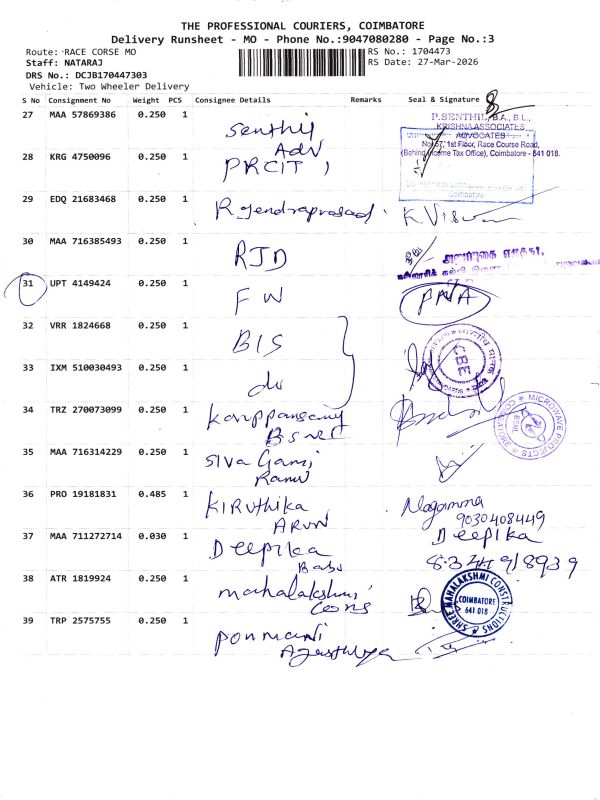 THE PROFESSIONAL COURIERS, COIMBATORE
Delivery Runsheet - MO - Phone No.:9047080280 - Page No.:3
Route: RACE CORSE MO RS No.: 1704473
Staff: NATARAJ RS Date: 27-Mar-2026
DRS No.: DCJB170447303
Vehicle: Two Wheeler Delivery
S No Consignment No Weight PCS Consignee Details Remarks Seal & Signature
27 MAA 57869386 0.250 1 Senthil
Adv
P.SENTHIL, B.A., B.L.,
KRISHNA ASSOCIATES
ADVOCATES
No.57, 1st Floor, Race Course Road,
(Behind Income Tax Office), Coimbatore - 641 018.
28 KRG 4750096 0.250 1 PRCIT 1
Coimbatore
29 EDQ 21683468 0.250 1 Rajendraprasad.
30 MAA 716385493 0.250 1 RJD
31 UPT 4149424 0.250 1 FW PNA
32 VRR 1824668 0.250 1 BIS
CBE
33 IXM 510030493 0.250 1 do
34 TRZ 270073099 0.250 1 Karuppansamy
BSNL
MICROWAVE PROJECTS
COIMBATORE
BSNL
35 MAA 716314229 0.250 1 Siva Gami
36 PRO 19181831 0.485 1 Kiruthika
ARUN
Nagamma
9030408449
37 MAA 711272714 0.030 1 Deepika
Babu
Deepika
8334918939
38 ATR 1819924 0.250 1 mahalakshmi
cons
SHREE MAHALAKSHMI CONSTRUCTIONS
COIMBATORE
641 018
39 TRP 2575755 0.250 1 ponmani